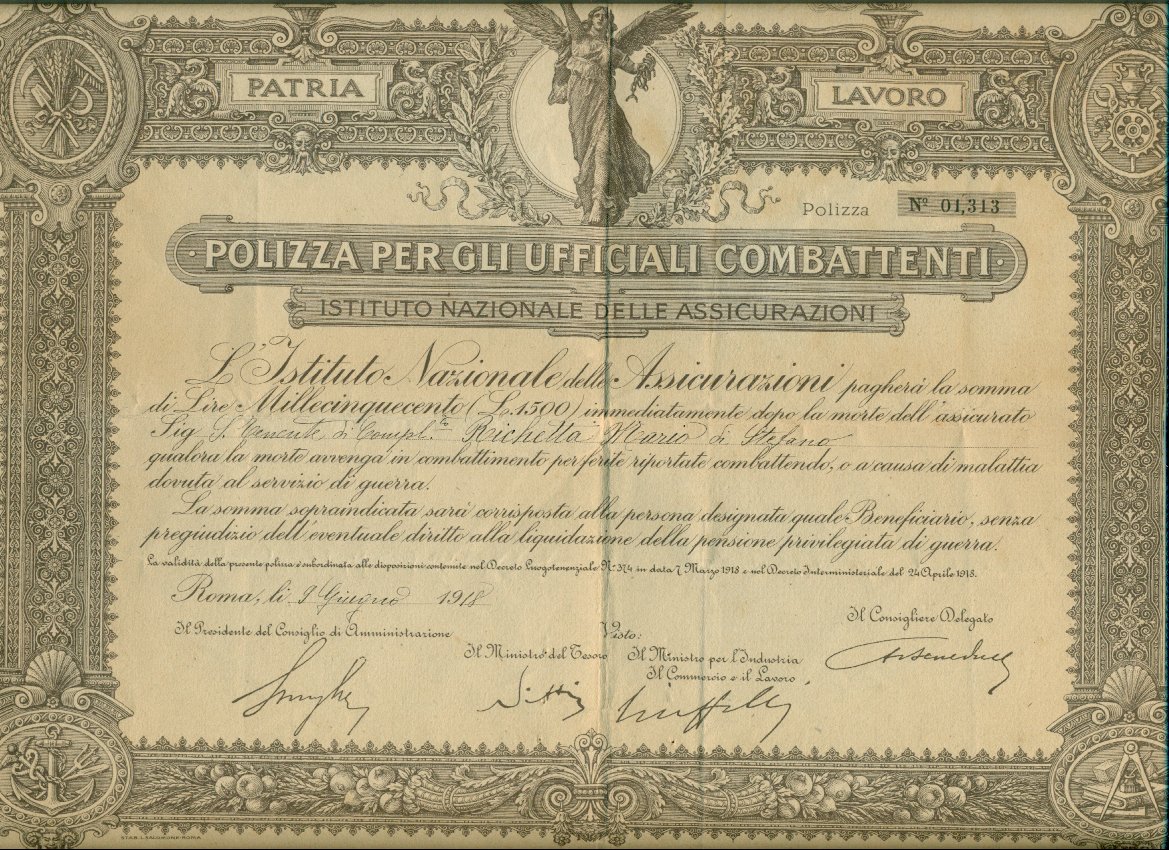 PATRIA
LAVORO
Polizza Nº 01,313
POLIZZA PER GLI UFFICIALI COMBATTENTI
ISTITUTO NAZIONALE DELLE ASSICURAZIONI
L'Istituto Nazionale delle Assicurazioni pagherà la somma
di Lire Millecinquecento (L.1500) immediatamente dopo la morte dell'assicurato
Sig S. Tenente di Compl.to Richetta Mario di Stefano
qualora la morte avvenga in combattimento per ferite riportate combattendo, o a causa di malattia
dovuta al servizio di guerra.
La somma sopraindicata sarà corrisposta alla persona designata quale Beneficiario, senza
pregiudizio dell'eventuale diritto alla liquidazione della pensione privilegiata di guerra.
La validità della presente polizza è subordinata alle disposizioni contenute nel Decreto Luogotenenziale Nº 374 in data 7 Marzo 1918 e nel Decreto Interministeriale del 24 Aprile 1918.
Roma, li 9 Giugno 1918
Il Consigliere Delegato
Il Presidente del Consiglio di Amministrazione
Visto:
Il Ministro del Tesoro
Il Ministro per l'Industria
Il Commercio e il Lavoro
STAB. L. SALOMONE-ROMA